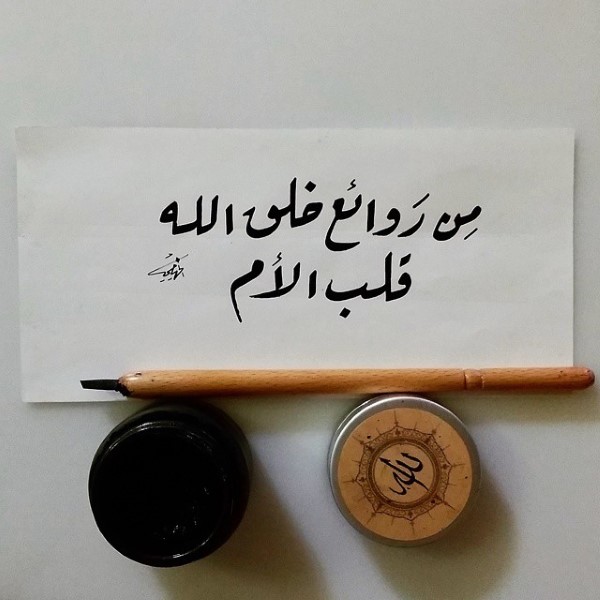 مِن رَوائع خلق الله
قلب الأم